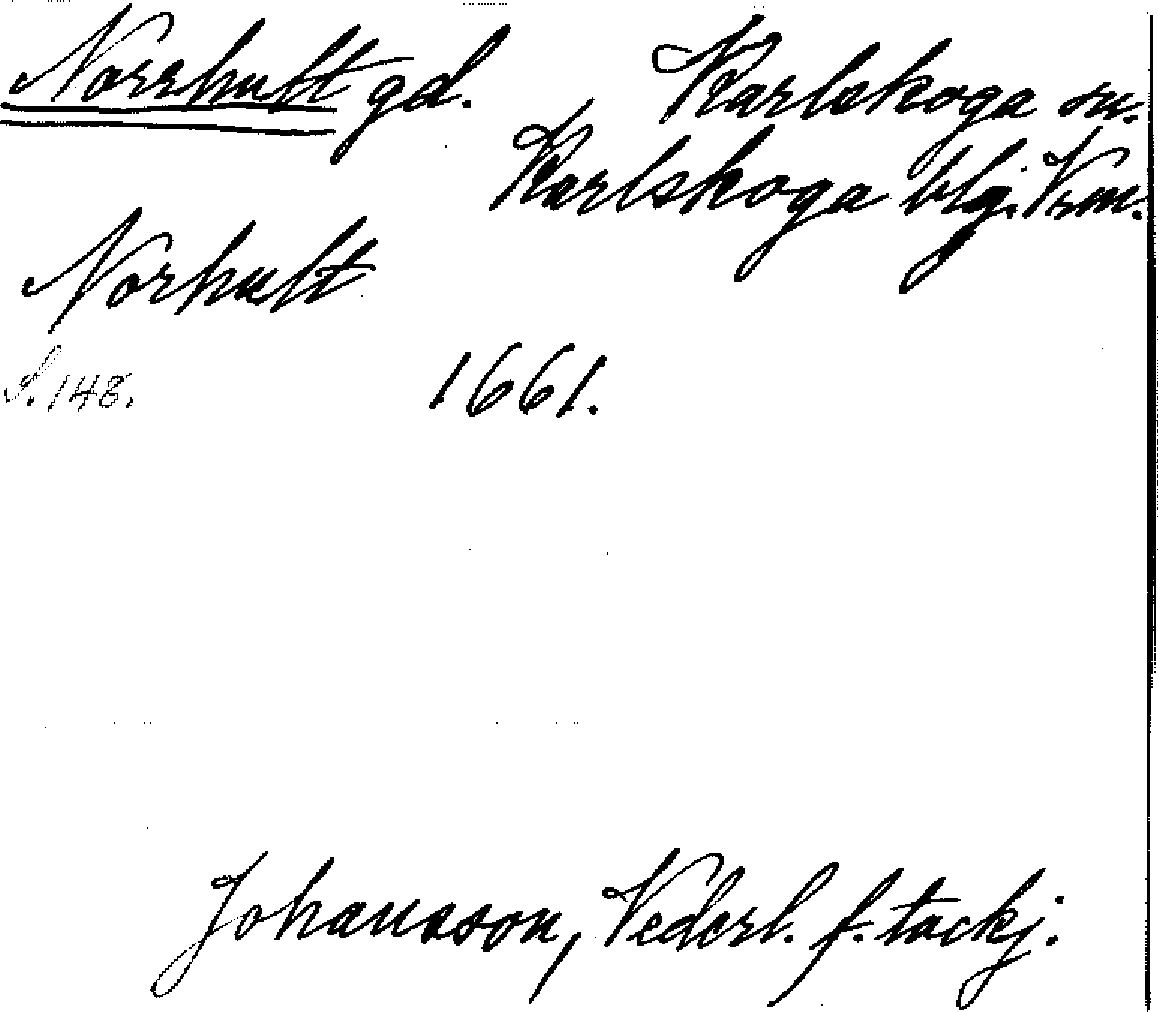 Norrhult gd. Karlskoga sn.
Karlskoga blg. Vrm.
Norhult
S. 148. 1661.
Johansson, Vederl. f. tackj.